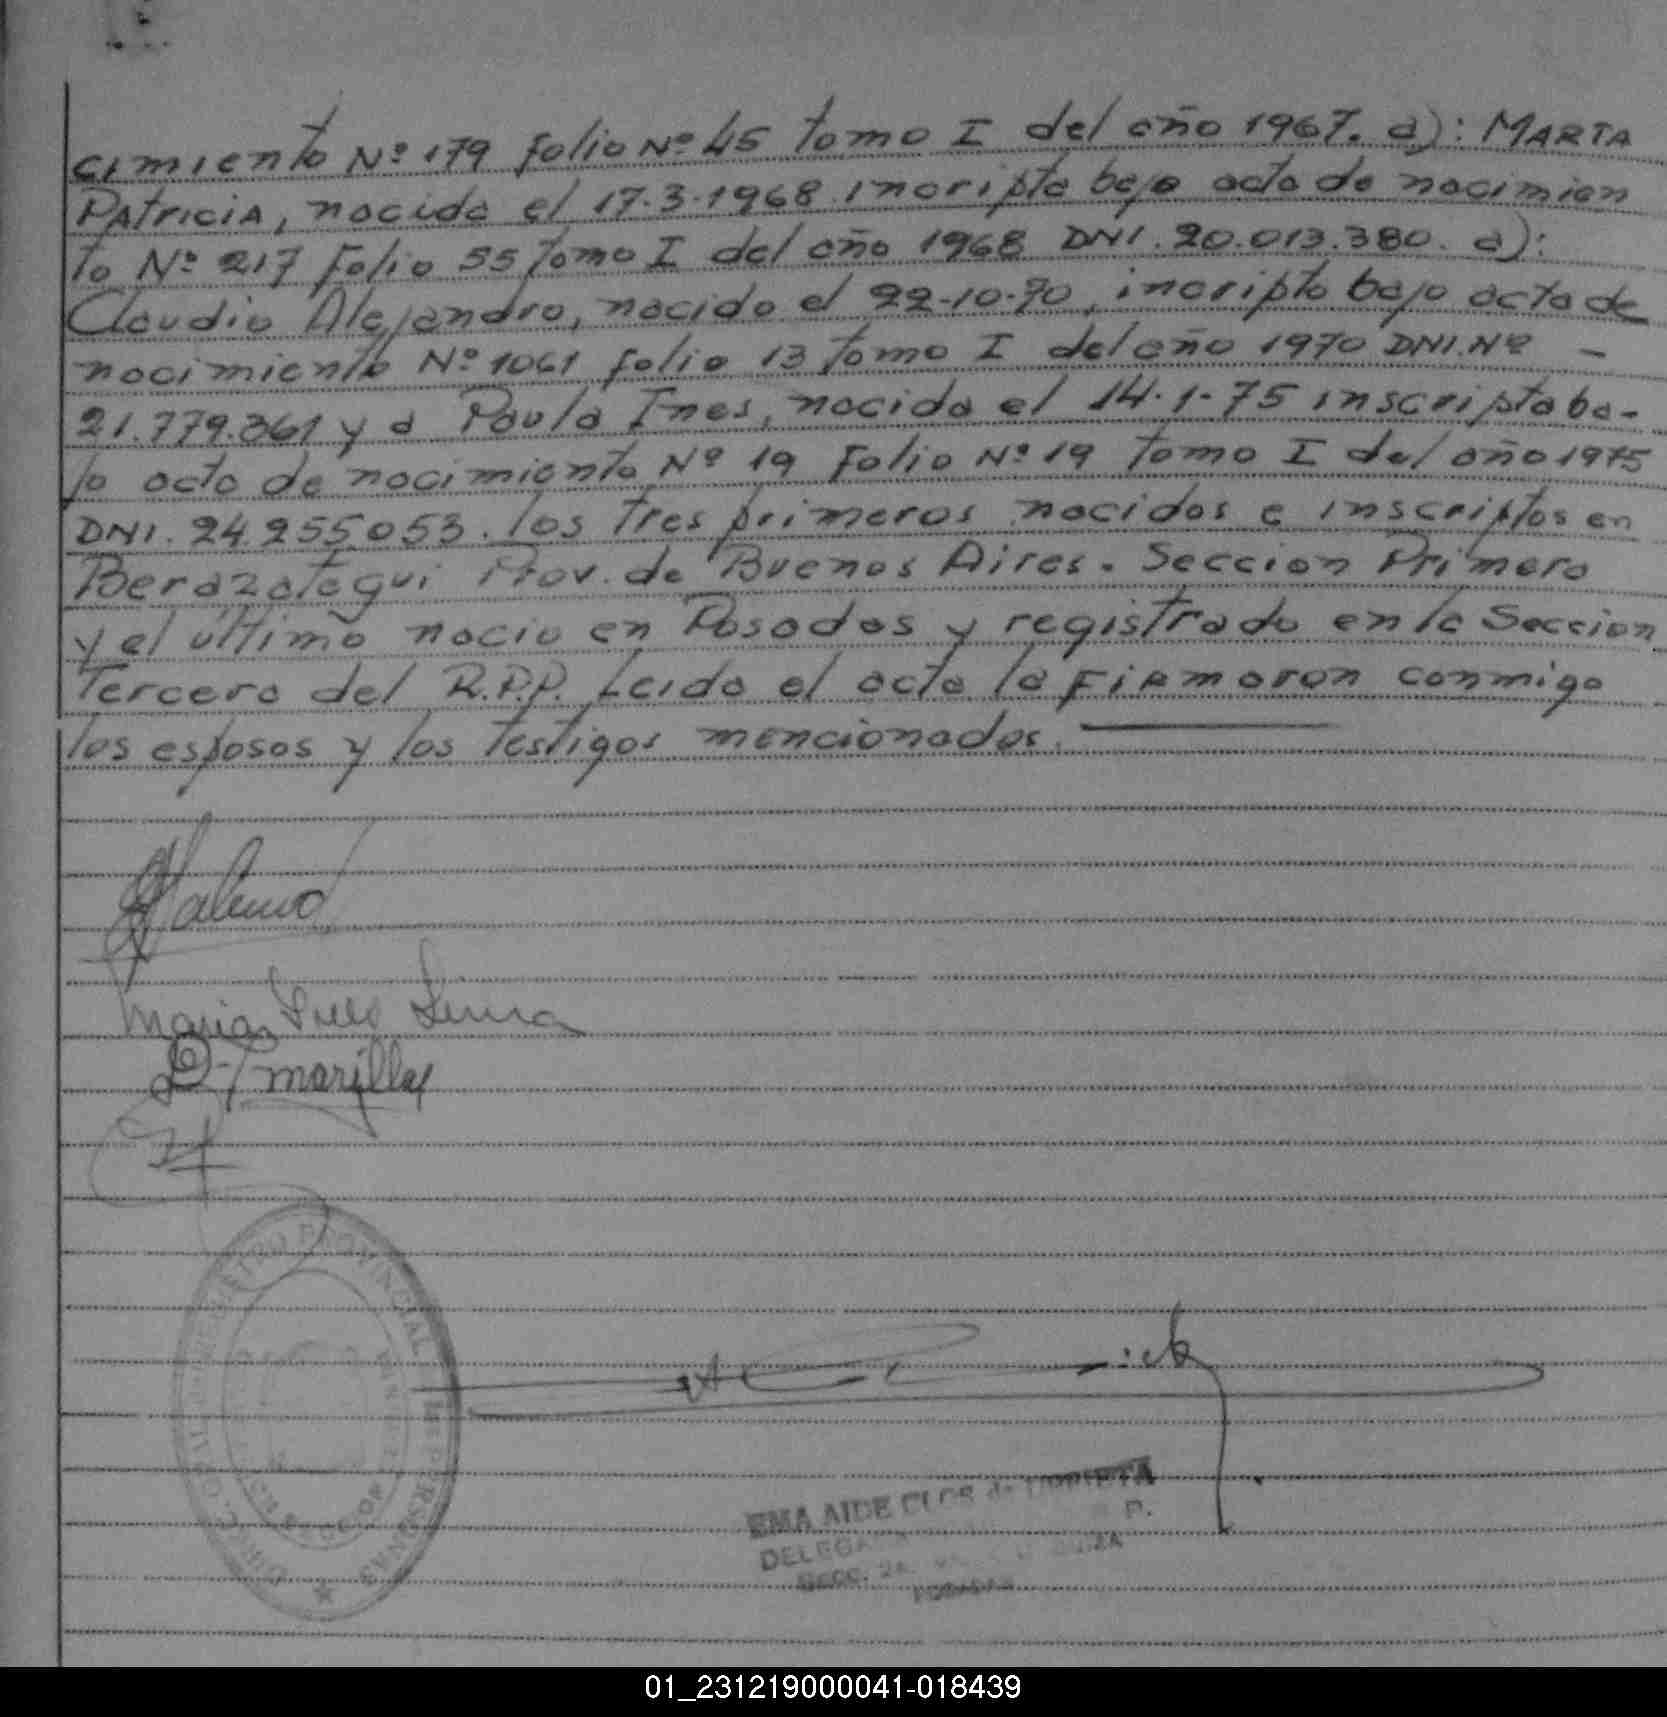 cimiento Nº 179 folio Nº 45 tomo I del año 1967. a): MARTA
PATRICIA, nacida el 17.3.1968 incripta bajo acta de nacimien
to Nº 217 folio 55 tomo I del año 1968 DNI. 20.013.380. a):
Claudio Alejandro, nacido el 22-10-70, incripto bajo acta de
nacimiento Nº 1061 folio 13 tomo I del año 1970 DNI. Nº -
21.779.361 y a Paula Ines, nacida el 14-1-75 inscripta ba-
jo acta de nacimiento Nº 19 folio Nº 19 tomo I del año 1975
DNI. 24.255.053. los tres primeros nacidos e inscriptos en
Berazategui Prov. de Buenos Aires. Seccion Primera
y el último nacio en Posadas y registrado en la Seccion
Tercera del R.P.P. Leida el acta la FIRMARON conmigo
los esposos y los testigos mencionados.
Maria Ines
marilla
REGISTRO PROVINCIAL DE PERSONAS
EMA AIDE CLOS de URRIETA
P.
Secc. 2a.
POSADAS
01_231219000041-018439